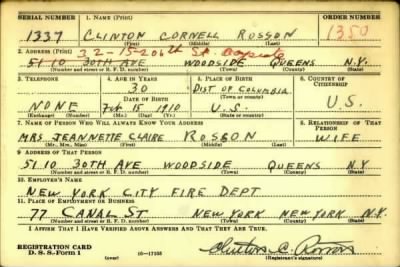 SERIAL NUMBER 1. NAME (Print) ORDER NUMBER
1337 CLINTON CORNELL ROSSON 1350
(First) (Middle) (Last)
2. ADDRESS (Print) 32-15-206th St.
5110 30TH AVE WOODSIDE QUEENS N.Y.
(Number and street or R. F. D. number) (Town) (County) (State)
3. TELEPHONE 4. AGE IN YEARS 5. PLACE OF BIRTH 6. COUNTRY OF CITIZENSHIP
30 DIST OF COLUMBIA
DATE OF BIRTH (Town or county)
NONE Feb 15 1910 U.S. U.S.
(Exchange) (Number) (Mo.) (Day) (Yr.) (State or country)
7. NAME OF PERSON WHO WILL ALWAYS KNOW YOUR ADDRESS 8. RELATIONSHIP OF THAT PERSON
MRS JEANNETTE CLAIRE ROSSON WIFE
(Mr., Mrs., Miss) (First) (Middle) (Last)
9. ADDRESS OF THAT PERSON
5110 30TH AVE WOODSIDE QUEENS N.Y.
(Number and street or R. F. D. number) (Town) (County) (State)
10. EMPLOYER'S NAME
NEW YORK CITY FIRE DEPT
11. PLACE OF EMPLOYMENT OR BUSINESS
77 CANAL ST NEW YORK NEW YORK N.Y.
(Number and street or R. F. D. number) (Town) (County) (State)
I AFFIRM THAT I HAVE VERIFIED ABOVE ANSWERS AND THAT THEY ARE TRUE.
REGISTRATION CARD Clinton C. Rosson
D. S. S. Form 1 (over) 16—17105 (Registrant's signature)